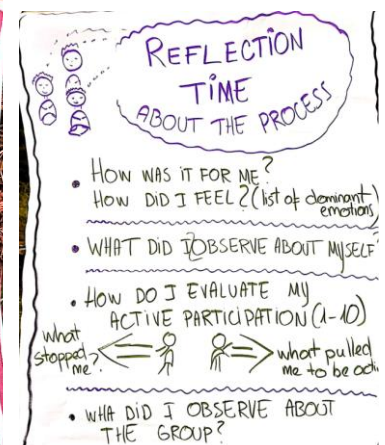 REFLECTION
TiME
ABOUT THE PROCESS
• HOW WAS IT FOR ME?
HOW DID I FEEL? (list of dominant
emotions)
• WHAT DID I OBSERVE ABOUT MYSELF
• HOW DO I EVALUATE MY
ACTIVE PARTICIPATION (1-10)
what
stopped
me?
what pulled
me to be acti
• WHA DID I OBSERVE ABOUT
THE GROUP?